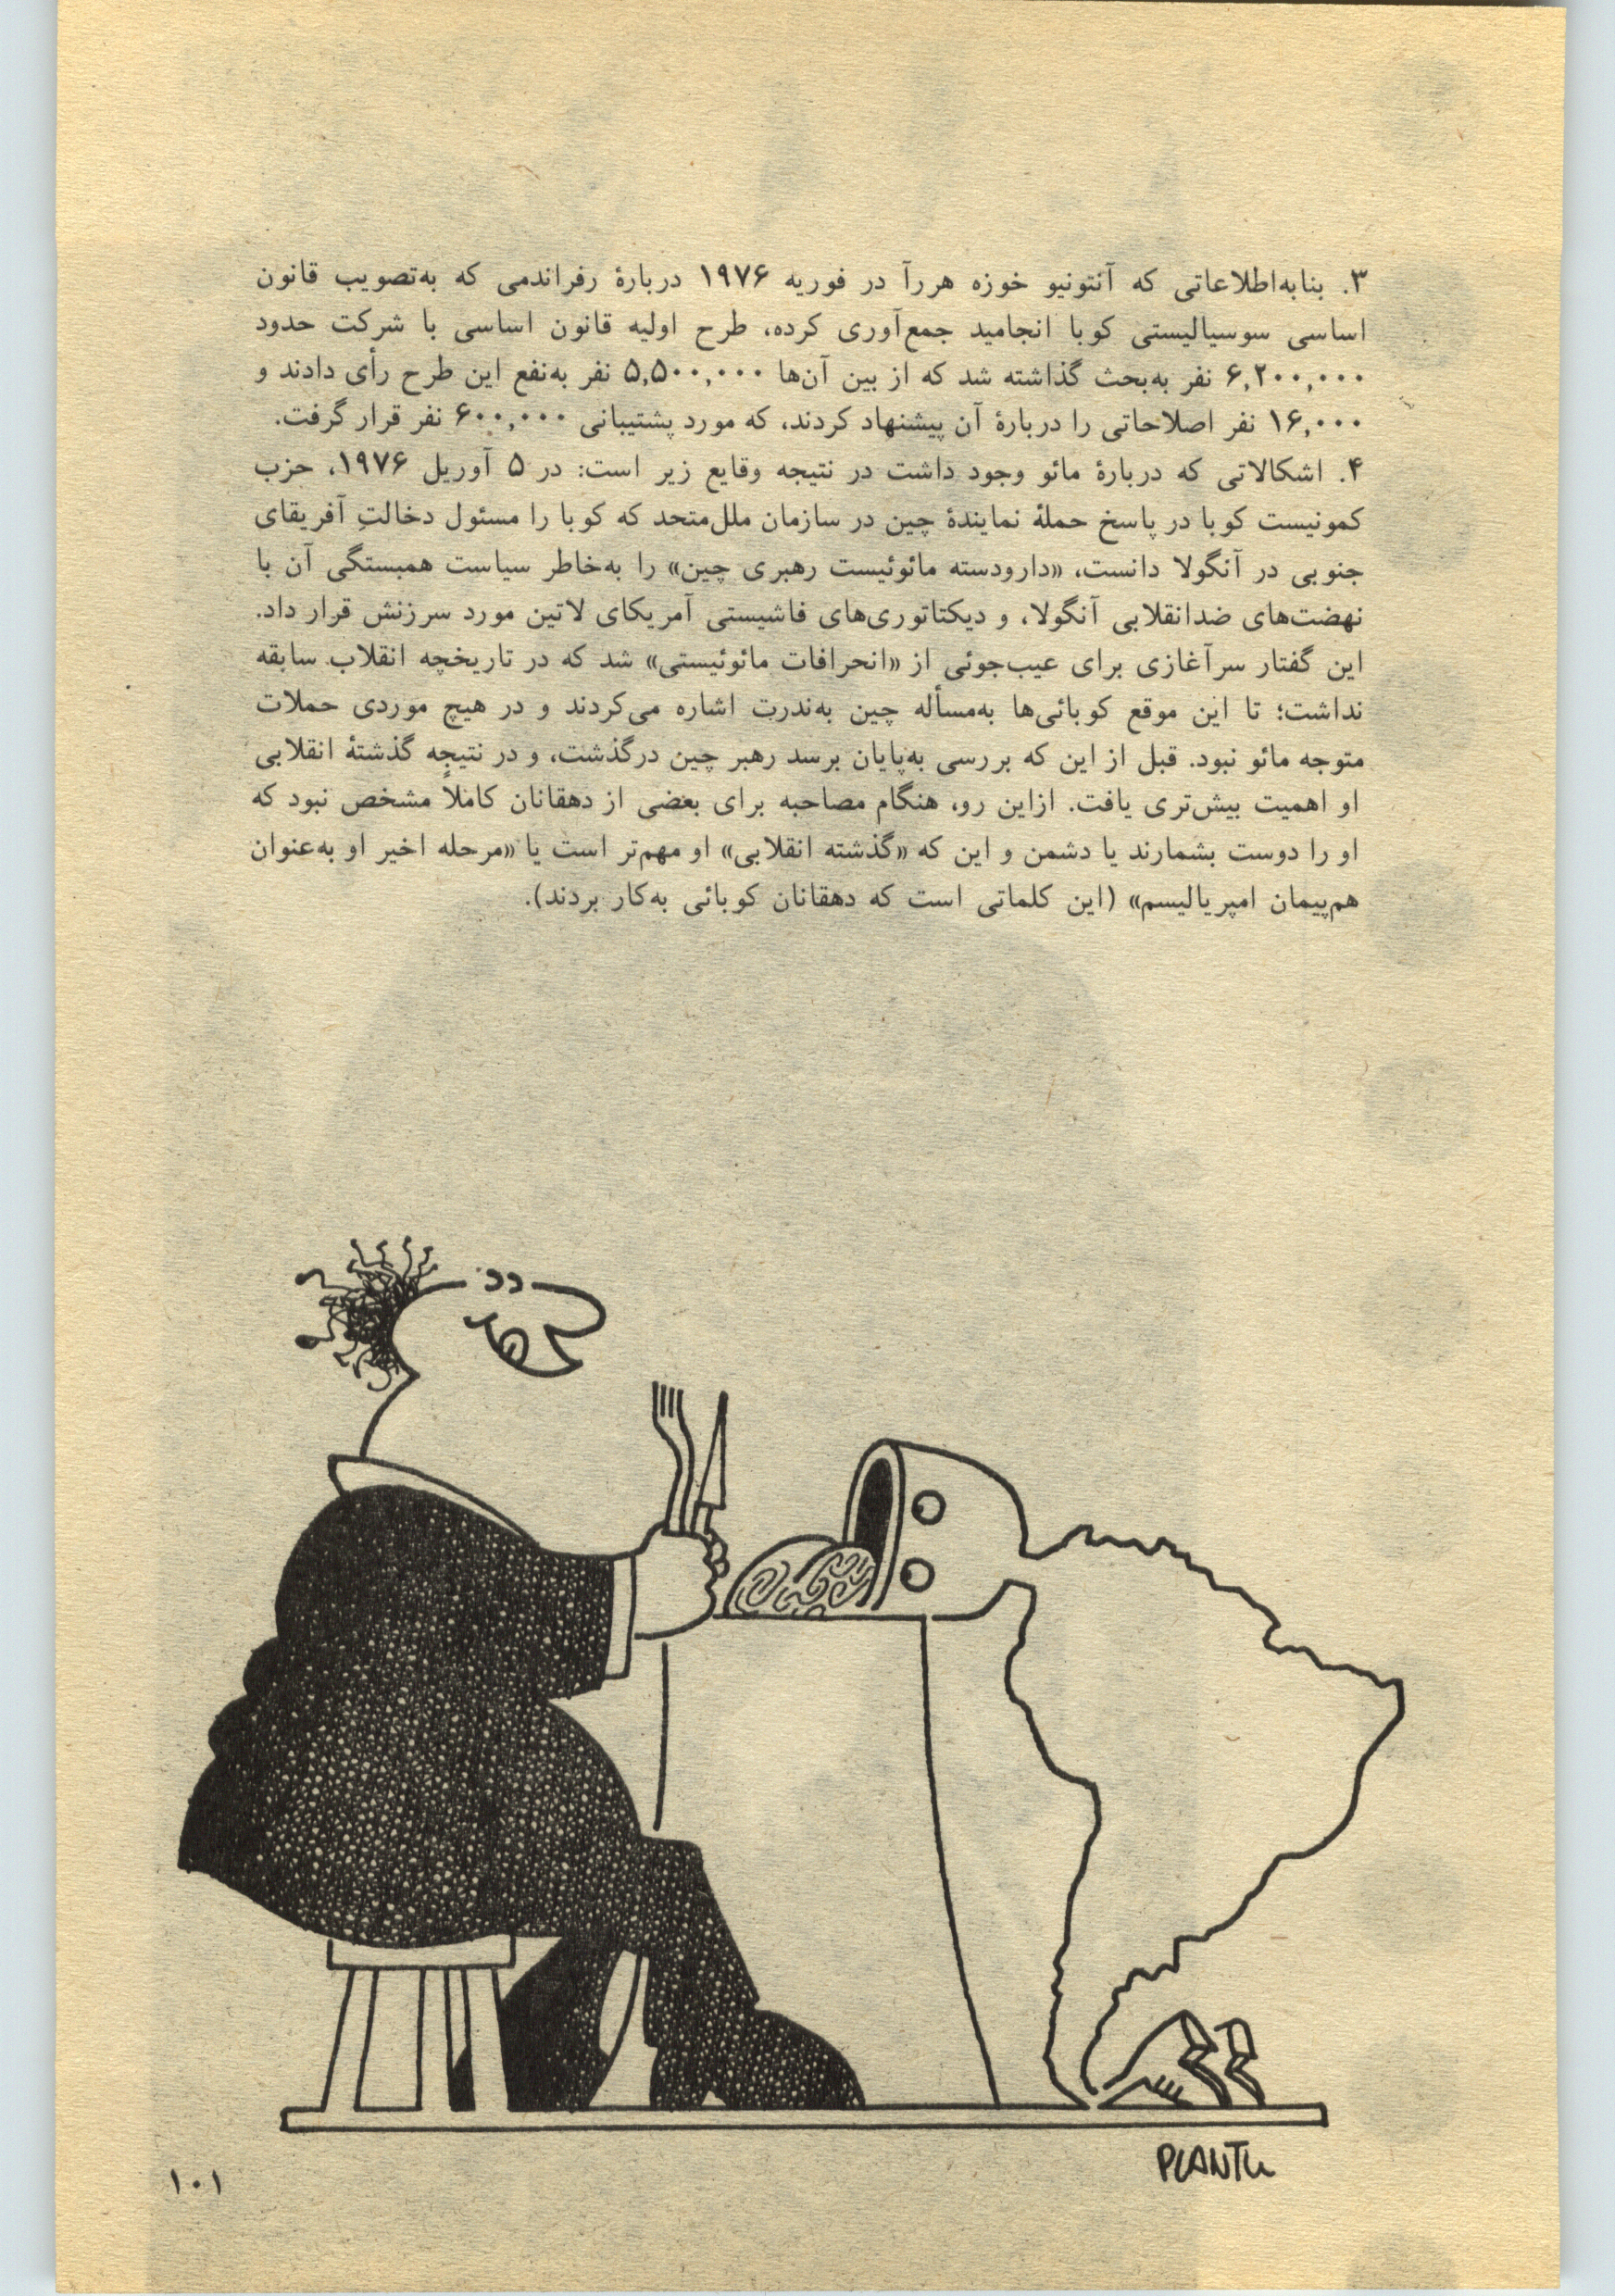 ۳. بنابه‌اطلاعاتی که آنتونیو خوزه هررآ در فوریه ۱۹۷۶ دربارهٔ رفراندمی که به‌تصویب قانون
اساسی سوسیالیستی کوبا انجامید جمع‌آوری کرده، طرح اولیه قانون اساسی با شرکت حدود
۶,۲۰۰,۰۰۰ نفر به‌بحث گذاشته شد که از بین آن‌ها ۵,۵۰۰,۰۰۰ نفر به‌نفع این طرح رأی دادند و
۱۶,۰۰۰ نفر اصلاحاتی را دربارهٔ آن پیشنهاد کردند، که مورد پشتیبانی ۶۰۰,۰۰۰ نفر قرار گرفت.
۴. اشکالاتی که دربارهٔ مائو وجود داشت در نتیجه وقایع زیر است: در ۵ آوریل ۱۹۷۶، حزب
کمونیست کوبا در پاسخ حملهٔ نمایندهٔ چین در سازمان ملل‌متحد که کوبا را مسئول دخالتِ آفریقای
جنوبی در آنگولا دانست، «دارودسته مائوئیست رهبری چین» را به‌خاطر سیاست همبستگی آن با
نهضت‌های ضدانقلابی آنگولا، و دیکتاتوری‌های فاشیستی آمریکای لاتین مورد سرزنش قرار داد.
این گفتار سرآغازی برای عیب‌جوئی از «انحرافات مائوئیستی» شد که در تاریخچه انقلاب سابقه
نداشت؛ تا این موقع کوبائی‌ها به‌مسأله چین به‌ندرت اشاره می‌کردند و در هیچ موردی حملات
متوجه مائو نبود. قبل از این که بررسی به‌پایان برسد رهبر چین درگذشت، و در نتیجه گذشتهٔ انقلابی
او اهمیت بیش‌تری یافت. ازاین رو، هنگام مصاحبه برای بعضی از دهقانان کاملاً مشخص نبود که
او را دوست بشمارند یا دشمن و این که «گذشته انقلابی» او مهم‌تر است یا «مرحله اخیر او به‌عنوان
هم‌پیمان امپریالیسم» (این کلماتی است که دهقانان کوبائی به‌کار بردند).
PLANTU
۱۰۱